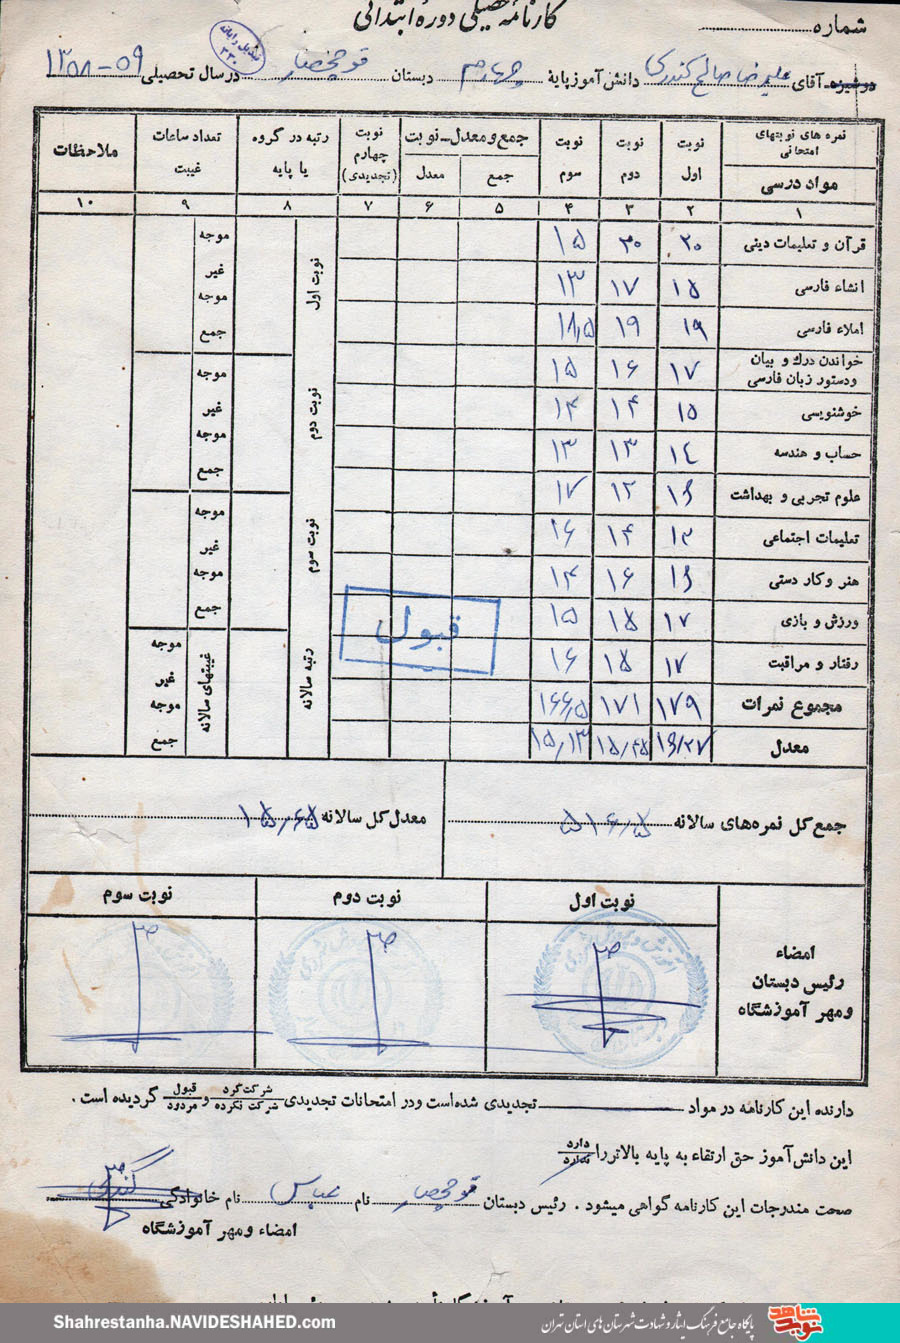 کارنامه تحصیلی دوره ابتدائی
شماره
تبدیل رایانه
۳۳۰
دوشیزه آقای علیرضا صالح کندری دانش آموز پایهٔ چهارم دبستان قوچحصار در سال تحصیلی ۱۳۵۸-۵۹
نمره های نوبتهای امتحانی
مواد درسی
نوبت اول
نوبت دوم
نوبت سوم
جمع و معدل ـ نوبت
جمع
معدل
نوبت چهارم (تجدیدی)
رتبه در گروه یا پایه
تعداد ساعات غیبت
ملاحظات
۱ ۲ ۳ ۴ ۵ ۶ ۷ ۸ ۹ ۱۰
قرآن و تعلیمات دینی ۲۰ ۲۰ ۱۵
انشاء فارسی ۱۵ ۱۷ ۱۳
املاء فارسی ۱۹ ۱۹ ۱۸٫۵
خواندن درك و بیان ودستور زبان فارسی ۱۷ ۱۶ ۱۵
خوشنویسی ۱۵ ۱۴ ۱۴
حساب و هندسه ۱۴ ۱۳ ۱۳
علوم تجربی و بهداشت ۱۶ ۱۲ ۱۷
تعلیمات اجتماعی ۱۲ ۱۴ ۱۶
هنر و کار دستی ۱۶ ۱۶ ۱۴
ورزش و بازی ۱۷ ۱۵ ۱۵
رفتار و مراقبت ۱۷ ۱۵ ۱۶
مجموع نمرات ۱۷۹ ۱۷۱ ۱۶۶٫۵
معدل ۱۶/۲۷ ۱۵٫۴۵ ۱۵٫۱۳
نوبت اول
موجه
غیر موجه
جمع
نوبت دوم
موجه
غیر موجه
جمع
نوبت سوم
موجه
غیر موجه
جمع
رتبه سالانه
غیبتهای سالانه
موجه
غیر موجه
جمع
قبول
جمع کل نمره‌های سالانه ۵۱۶٫۵
معدل کل سالانه ۱۵٫۶۵
نوبت اول
نوبت دوم
نوبت سوم
امضاء
رئیس دبستان
ومهر آموزشگاه
دارنده این کارنامه در مواد تجدیدی شده‌است ودر امتحانات تجدیدی شرکت کرده شرکت نکرده و قبول مردود گردیده است .
این دانش‌آموز حق ارتقاء به پایه بالاتررا دارد ندارد
صحت مندرجات این کارنامه گواهی میشود . رئیس دبستان قوچحصار نام عباس نام خانوادگی کندری
امضاء ومهر آموزشگاه
Shahrestanha.NAVIDESHAHED.com
پایگاه جامع فرهنگ ایثار و شهادت شهرستان های استان تهران
نوید شاهد